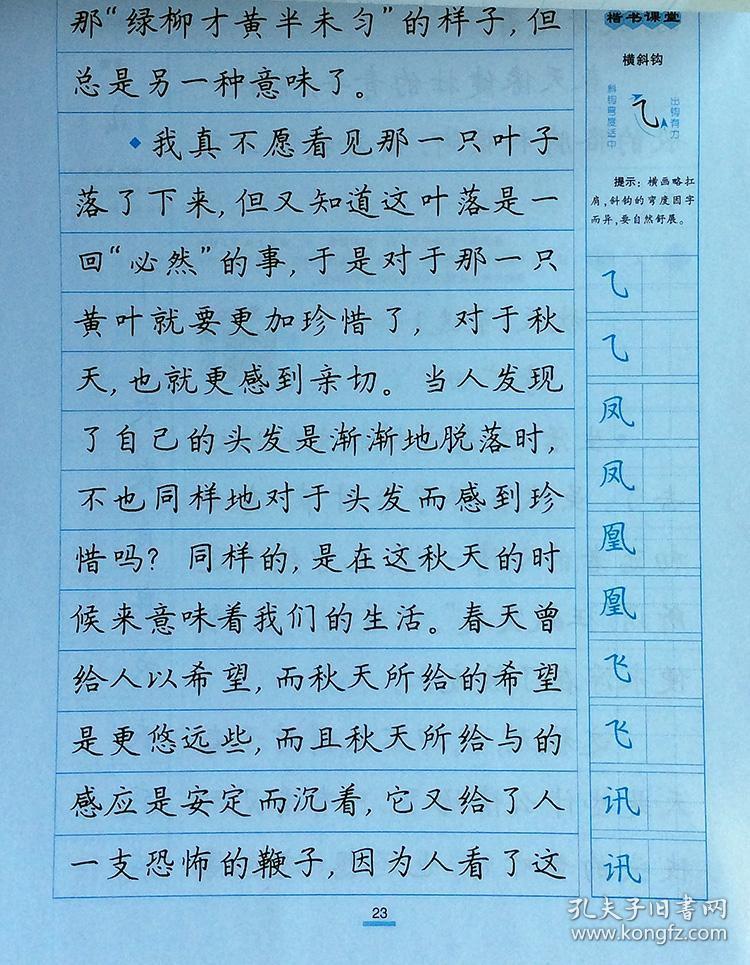 那“绿柳才黄半未匀”的样子,但
总是另一种意味了。
◆我真不愿看见那一只叶子
落了下来,但又知道这叶落是一
回“必然”的事,于是对于那一只
黄叶就要更加珍惜了,对于秋
天,也就更感到亲切。当人发现
了自己的头发是渐渐地脱落时,
不也同样地对于头发而感到珍
惜吗?同样的,是在这秋天的时
候来意味着我们的生活。春天曾
给人以希望,而秋天所给的希望
是更悠远些,而且秋天所给与的
感应是安定而沉着,它又给了人
一支恐怖的鞭子,因为人看了这
23
楷书课堂
横斜钩
斜钩弯度适中
⺄
出钩有力
提示:横画略扛
肩,斜钩的弯度因字
而异,要自然舒展。
⺄
⺄
凤
凤
凰
凰
飞
飞
讯
讯
孔夫子旧书网
www.kongfz.com